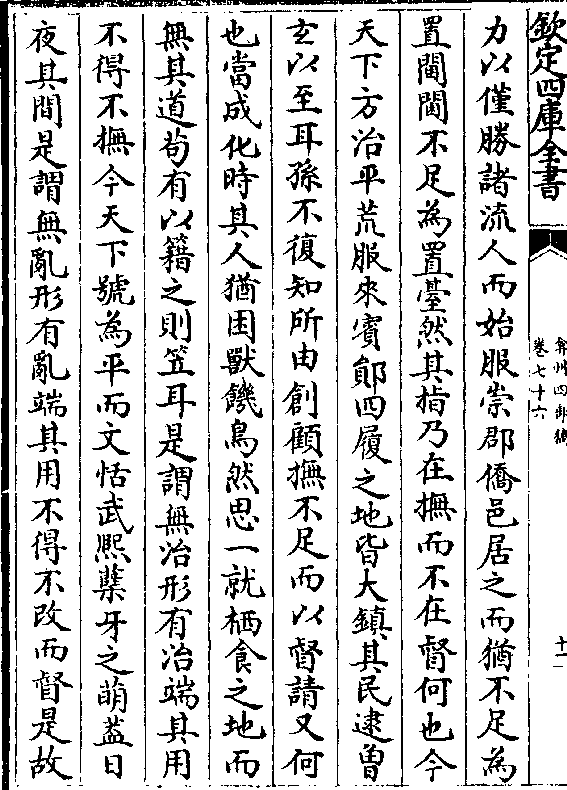 欽定四庫全書
弇州四部稿
卷七十六
十一
力以僅勝諸流人而始服崇郡僑邑居之而猶不足為
置閫閫不足為置臺然其指乃在撫而不在督何也今
天下方治平荒服來賓鄖四履之地皆大鎮其民逮曾
玄以至耳孫不復知所由創顧撫不足而以督請又何
也當成化時其人猶困獸饑鳥然思一就栖食之地而
無其道苟有以籍之則笠耳是謂無治形有治端其用
不得不撫今天下號為平而文恬武熈蘖牙之萌葢日
夜其間是謂無亂形有亂端其用不得不改而督是故